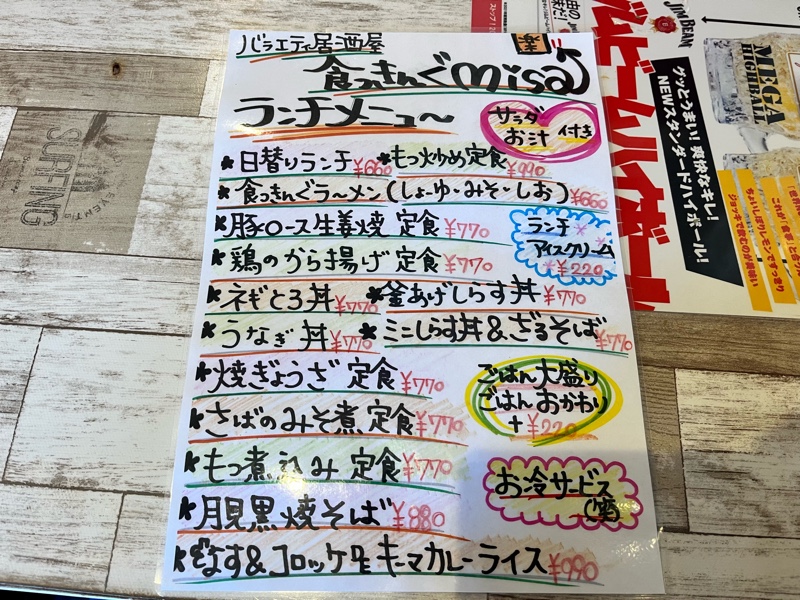 バラエティ居酒屋
楽
食っきんぐmisa
ランチメニュ～
サラダ
お汁
付き
*日替りランチ ¥660 *もつ炒め定食 ¥990
*食っきんぐラ～メン(しょーゆ・みそ・しお) ¥660
*豚ロース生姜焼 定食 ¥770
ランチ
アイスクリーム
¥220
*鶏のから揚げ 定食 ¥770
*ネギとろ丼 ¥770 *釜あげしらす丼 ¥770
*うなぎ丼 ¥770 *ミニしらす丼&ざるそば ¥770
*焼ぎょうざ 定食 ¥770
ごはん大盛り
ごはんおかわり
+¥220
*さばのみそ煮 定食 ¥770
*もつ煮込み 定食 ¥770
お冷サービス
(笑)
*月見黒焼そば ¥880
&コロッケ キーマカレーライス ¥990
JIM BEAM
ジムビームハイボール
グッとうまい!爽快なキレ!
NEWスタンダードハイボール!
MEGA
HIGHBALL
SURFING